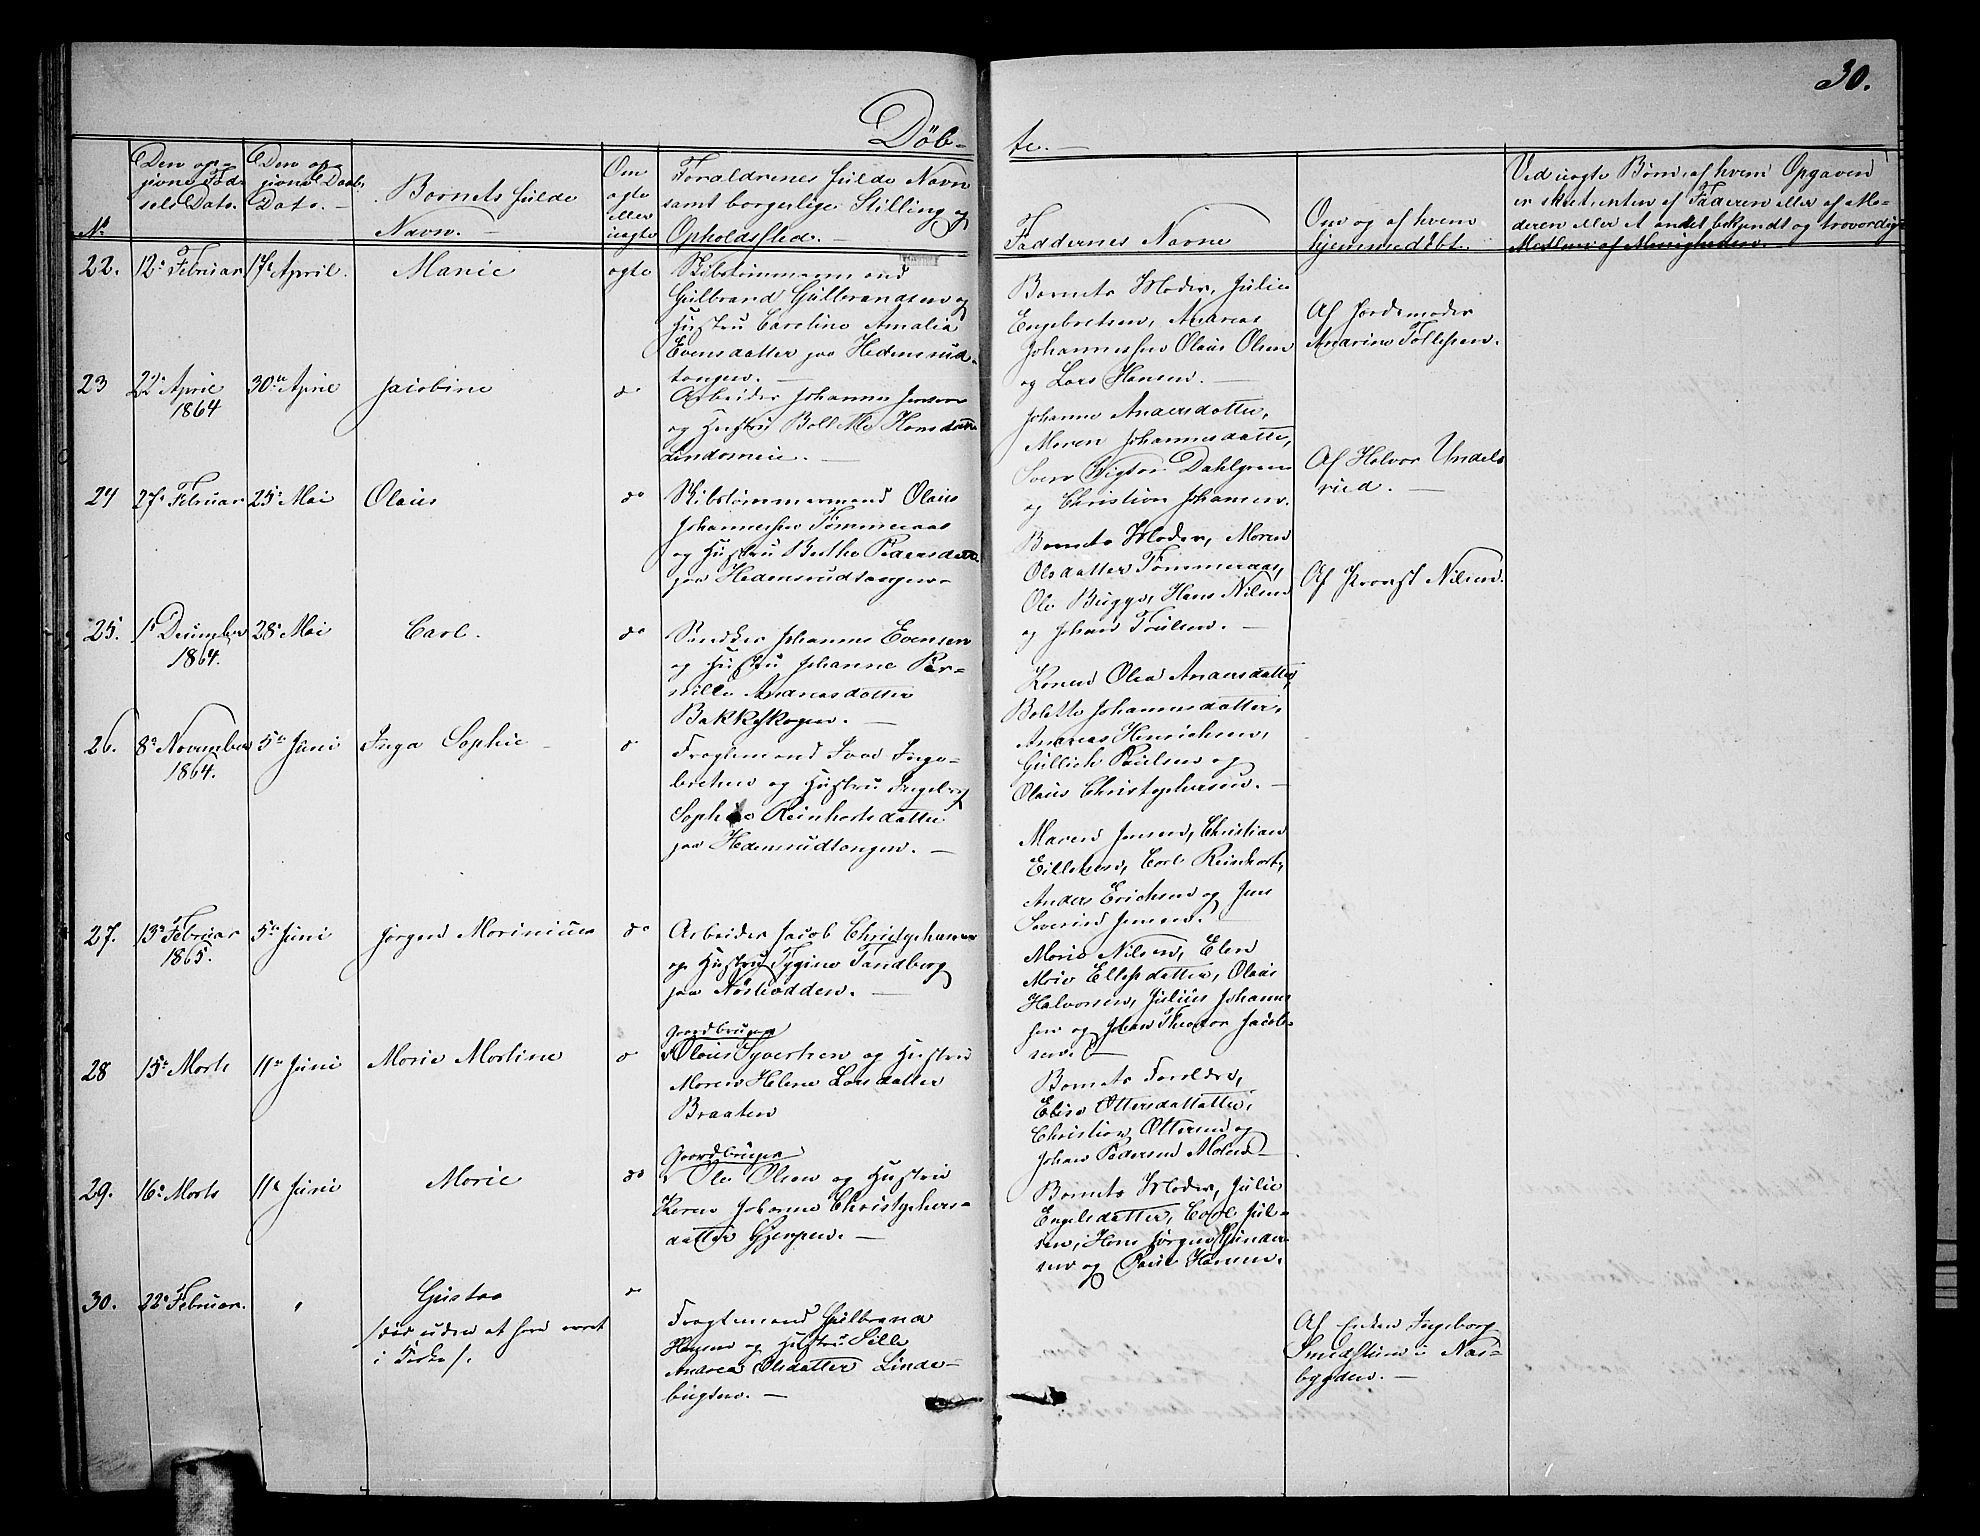 30.
Døb-
te.
No
Den op-
givne Fød-
sels Dato.
Den op-
givne Daabs
Dato.
Barnets fulde
Navn.
Om
ægte
eller
uægte
Forældrenes fulde Navn
samt borgerlige Stilling og
Opholdssted.
Faddernes Navne
Om og af hvem
hjemmedøbt.
Ved uægte Børn, af hvem Opgaven
er skeet, enten af Faderen eller af Mo-
deren eller et andet bekjendt og troværdigt
Medlem af Menigheden.
22.
12te Februar
17de April.
Marie
ægte
Skibstømmermand
Gulbrand Gulbrandsen og
Hustru Caroline Amalia
Evensdatter paa Hedensrud-
tangen.
Barnets Moder, Julie
Engebretsen, Andreas
Johannessen Olaus Olsen
og Lars Hansen.
Af Jordemoder
Anarine Tollefsen.
23
22de April
1864
30te April
Jacobine
do
Arbeider Johannes Jensen
og Hustru Bolette Hansdatter
Lindesneie.
Johanne Andersdatter,
Maren Johannesdatter,
Sven Vigtor Dahlgreen
og Christian Johansen.
Af Halvor Undels
rud.
24
27de Februar
25de Mai
Olaus
do
Skibstømmermand Olaus
Johannessen Tømmeraas
og Hustru Berthe Pedersdatter
paa Hedensrudtangen
Barnets Moder, Maren
Olsdatter Tømmeraas,
Ole Bugge, Hans Nilsen
og Johan Trulsen.
Af Provst Nilsen.
25.
1ste December
1864.
28de Mai
Carl.
do
Snedker Johannes Evensen
og Hustru Johanne Per-
nille Andreasdatter
Bakkeskogen.
Karen Olea Andersdatter,
Bolette Johannesdatter,
Andreas Henrichsen,
Gullich Paulsen og
Olaus Christophersen.
26.
8de November
1864.
5te Juni
Inga Sophie
do
Fragtemand Ivar Inge-
bretsen og Hustru Ingeborg
Sophie Reinhartsdatter
paa Hedensrudtangen.
Maren Jensen, Christian
Eillefsen, Carl Reinhart,
Anders Erichsen og Jens
Severin Jensen.
27.
13de Februar
1865.
5te Juni
Jørgen Marinius
do
Arbeider Jacob Christophersen
og Hustru Tygine Tandberg
paa Næsodden.
Marie Nilsen, Elen
Marie Ellefsdatter, Olaus
Halvorsen, Julius Johannes
sen og Johan Theodor Jacob-
sen.
28
15de Marts
11te Juni
Marie Martine
do
Gaardbruger
Olaus Syvertsen og Hustru
Maren Helene Larsdatter
Braaten
Barnets Forældre,
Elise Ottersdatter,
Christian Ottersen og
Johan Pedersen Moland
29.
16de Marts
11te Juni
Marie
do
Gaardbruger
Ole Olsen og Hustru
Karen Johanne Christophers-
datter Gjerpen.
Barnets Moder, Julie
Engelsdatter, Carl Jul-
sen, Hans Jørgen Gunder-
sen og Paul Hansen.
30.
22de Februar.
"
Gustav
/død uden at have været
i Kirke/.
do
Fragtemand Gulbrand
Hansen og Hustru Sille
Andrea Olsdatter Linde-
bugten.
Af Enken Ingeborg
Smedstuen i Næs-
bygden.